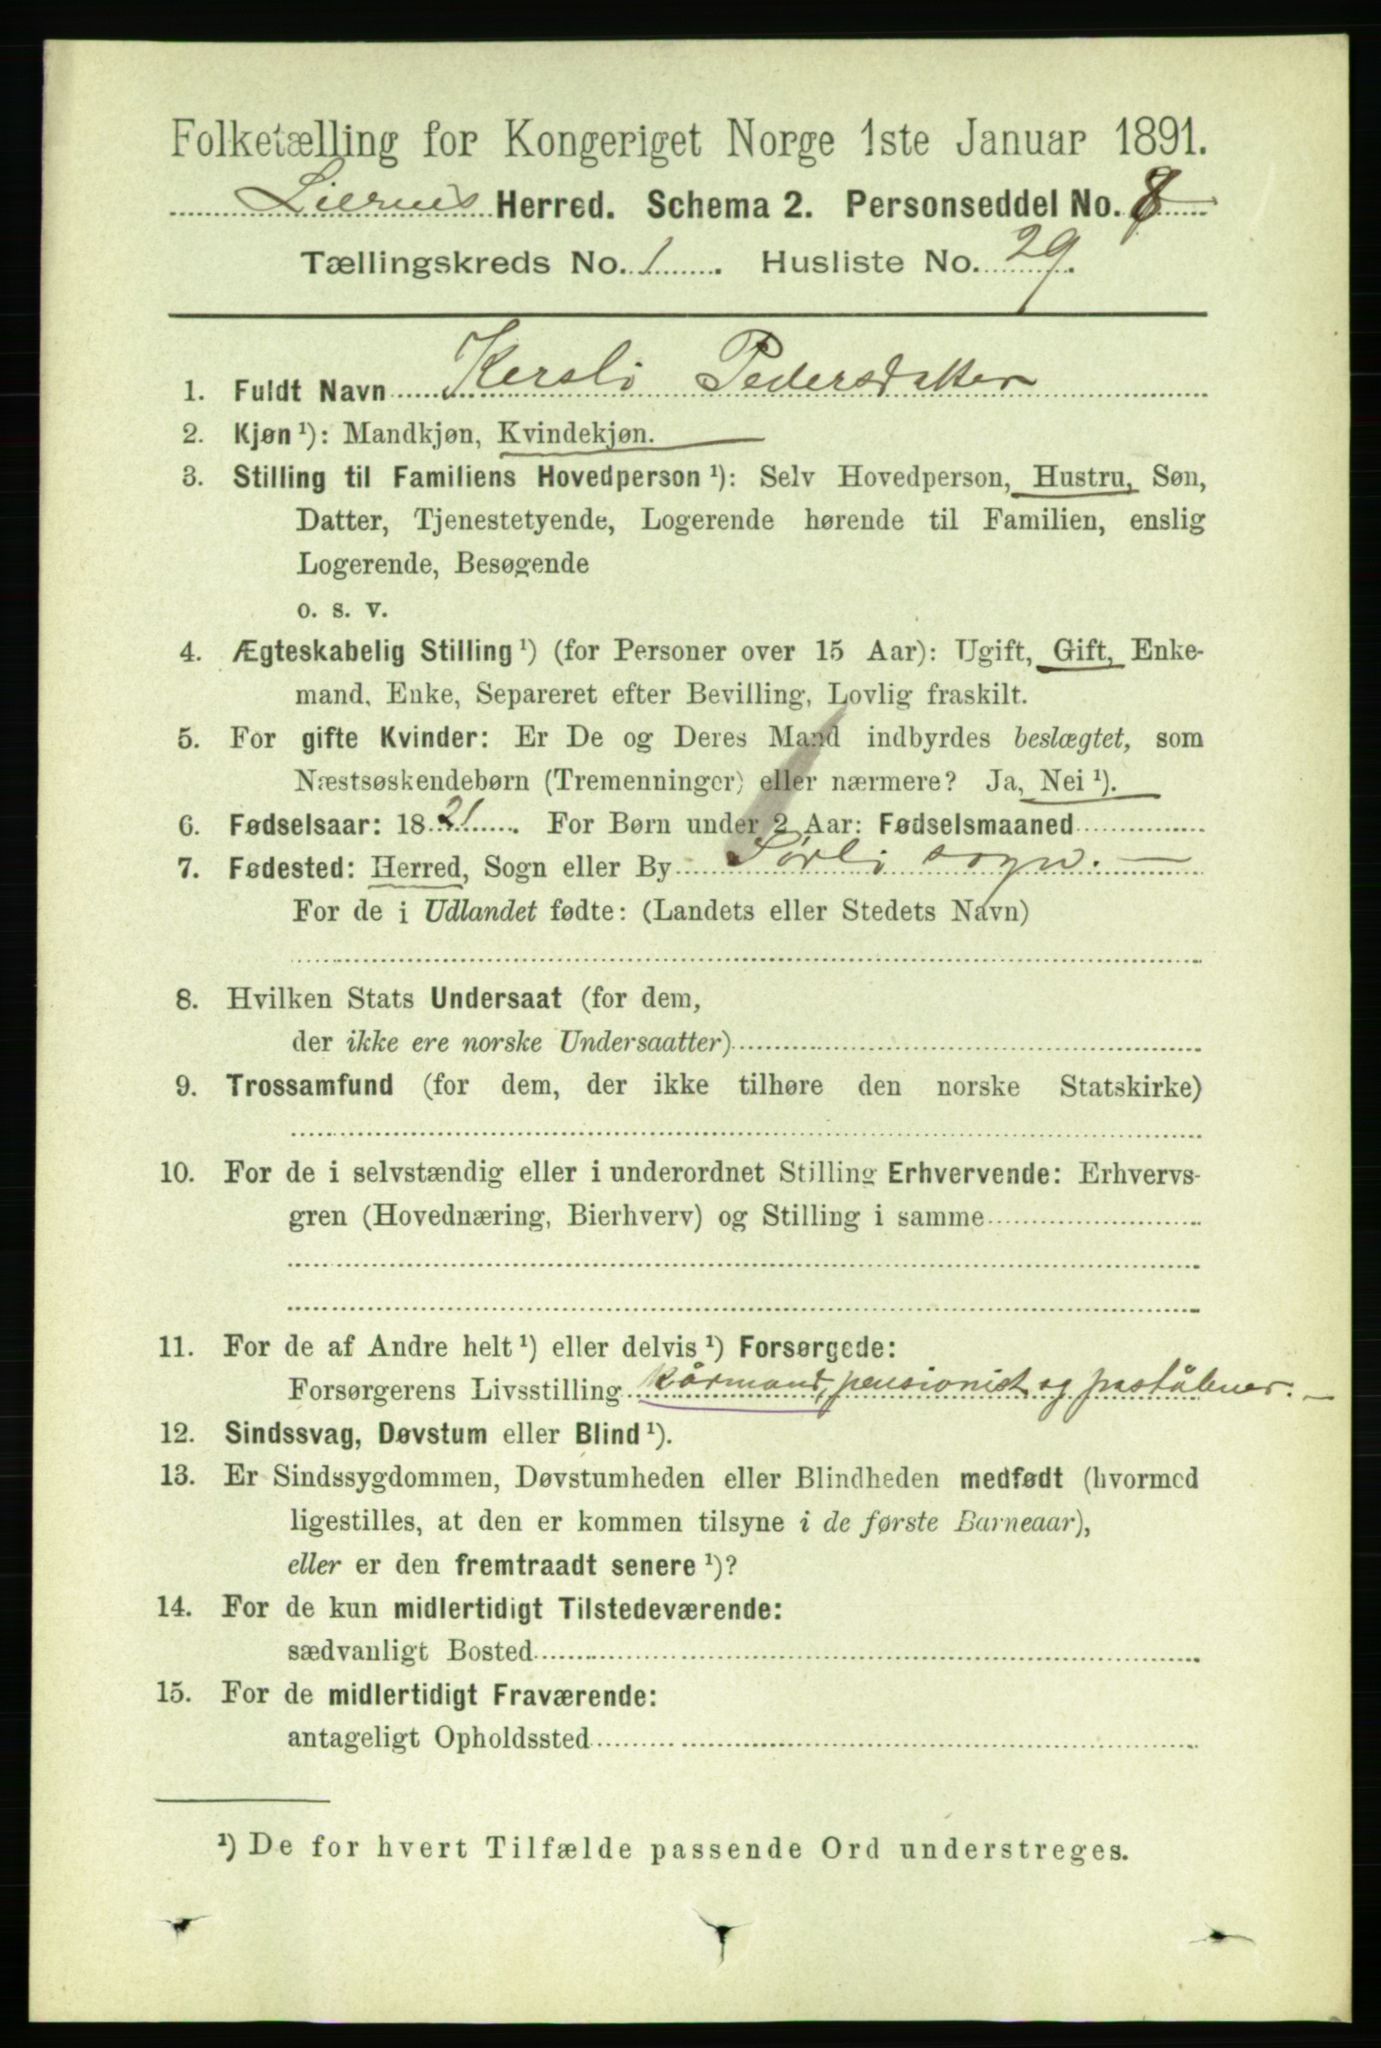 Folketælling for Kongeriget Norge 1ste Januar 1891.
Liernes Herred. Schema 2. Personseddel No. 8
Tællingskreds No. 1. Husliste No. 29.
1. Fuldt Navn Kersli Pedersdatter
2. Kjøn¹): Mandkjøn, Kvindekjøn.
3. Stilling til Familiens Hovedperson¹): Selv Hovedperson, Hustru, Søn,
Datter, Tjenestetyende, Logerende hørende til Familien, enslig
Logerende, Besøgende
o. s. v.
4. Ægteskabelig Stilling¹) (for Personer over 15 Aar): Ugift, Gift, Enke-
mand, Enke, Separeret efter Bevilling, Lovlig fraskilt.
5. For gifte Kvinder: Er De og Deres Mand indbyrdes beslægtet, som
Næstsøskendebørn (Tremenninger) eller nærmere? Ja, Nei¹).
6. Fødselsaar: 1821. For Børn under 2 Aar: Fødselsmaaned
7. Fødested: Herred, Sogn eller By Sørli sogn.
For de i Udlandet fødte: (Landets eller Stedets Navn)
8. Hvilken Stats Undersaat (for dem,
der ikke ere norske Undersaatter)
9. Trossamfund (for dem, der ikke tilhøre den norske Statskirke)
10. For de i selvstændig eller i underordnet Stilling Erhvervende: Erhvervs-
gren (Hovednæring, Bierhverv) og Stilling i samme
11. For de af Andre helt¹) eller delvis¹) Forsørgede:
Forsørgerens Livsstilling kårmand, pensionist og postålner.
12. Sindssvag, Døvstum eller Blind¹).
13. Er Sindssygdommen, Døvstumheden eller Blindheden medfødt (hvormed
ligestilles, at den er kommen tilsyne i de første Barneaar),
eller er den fremtraadt senere¹)?
14. For de kun midlertidigt Tilstedeværende:
sædvanligt Bosted
15. For de midlertidigt Fraværende:
antageligt Opholdssted
¹) De for hvert Tilfælde passende Ord understreges.